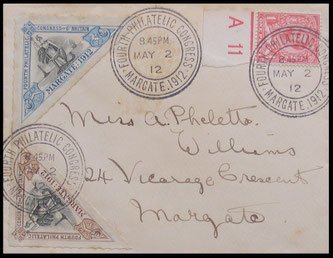 FOURTH PHILATELIC CONGRESS
8.45PM
MAY 2
12
MARGATE.1912.
A
11
FOURTH PHILATELIC CONGRESS
8.45PM
MAY 2
12
MARGATE.1912.
CONGRESS OF
BRITAIN
FOURTH PHILATELIC
MARGATE. 1912
Miss A. Pheletta
Williams
24 Vicarage Crescent
Margate
FOURTH PHILATELIC CONGRESS
45PM
2
12
MARGATE 1912
FOURTH PHILATELIC